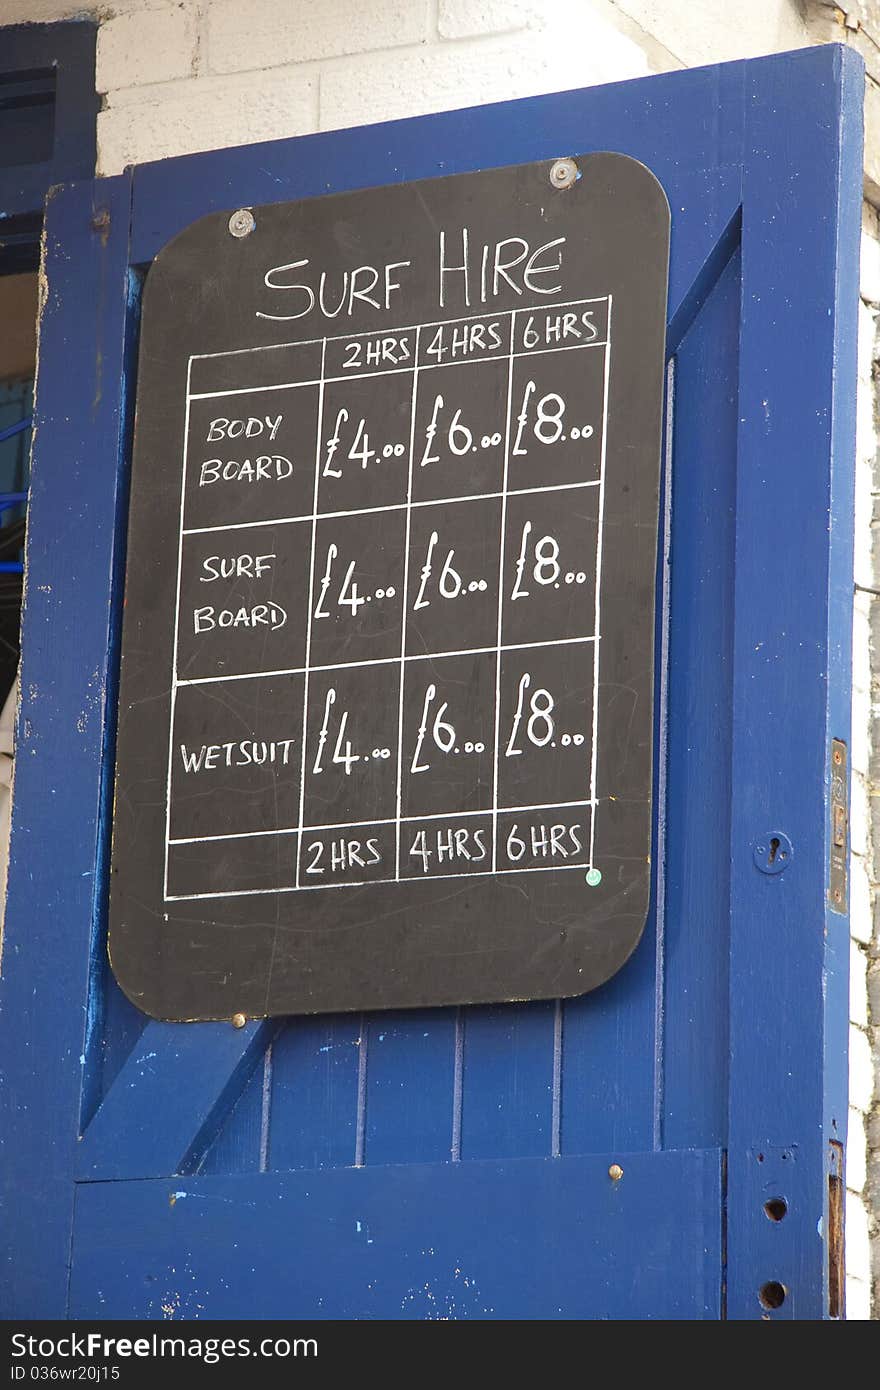 SURF HIRE
2HRS 4HRS 6HRS
BODY BOARD £4.00 £6.00 £8.00
SURF BOARD £4.00 £6.00 £8.00
WETSUIT £4.00 £6.00 £8.00
2HRS 4HRS 6HRS
StockFreeImages.com
ID 036wr20j15